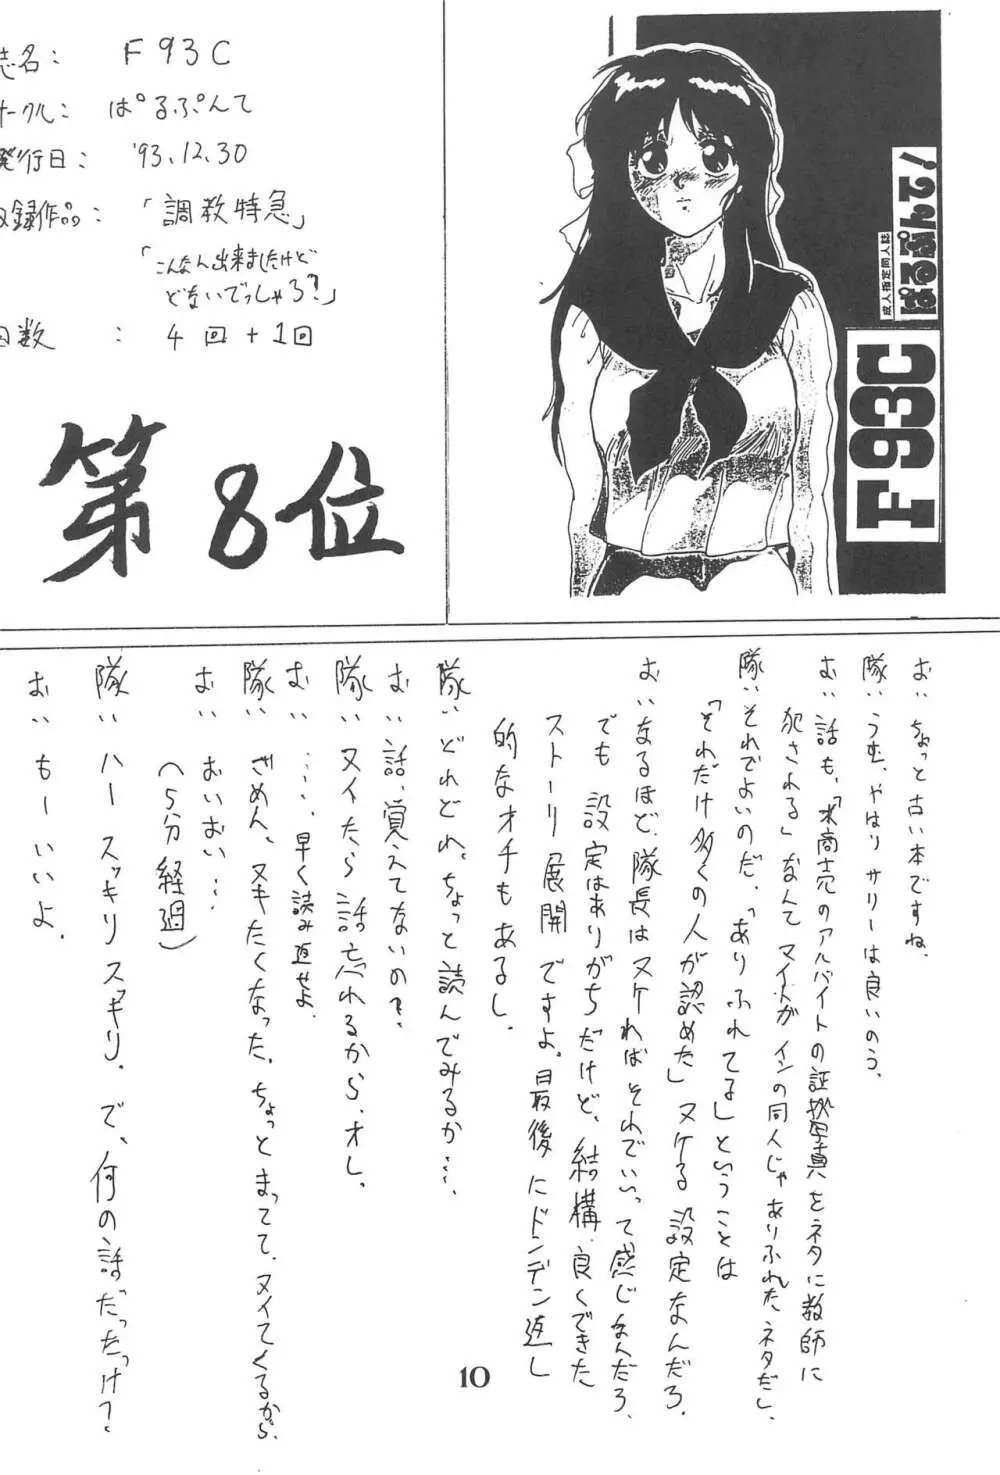 誌名： F93C
サークル： ぱるぷんて
発行日： '93.12.30
収録作品： 「調教特急」
「こんなん出来ましたけど
どないでっしゃろ？」
回数 ： 4回+1回
第8位
成人指定同人誌
ぱるぷんて！
F93C
お‥ ちょっと古い本ですね．
隊‥ うむ、やはりサリーは良いのう．
お‥ 話も、「水商売のアルバイトの証拠写真をネタに教師に
犯される」なんてマイナーが インの同人じゃありふれた、ネタだし．
隊‥ それでよいのだ．「ありふれてる」ということは
「それだけ多くの人が認めた」ヌケる設定なんだろ．
お‥ なるほど、隊長はヌケればそれでいいって感じなんだろ．
でも 設定はありがちだけど、結構良くできた
ストーリー展開ですよ．最後にドンデン返し
的なオチもあるし．
隊‥ どれどれ．ちょっと読んでみるか…．
お‥ 話、覚えてないの？
隊‥ ヌイたら話忘れるから、オレ．
お‥ ‥‥．早く読み返せよ．
隊‥ ごめん、ヌキたくなった．ちょっとまってて．ヌイてくるから．
お‥ おいおい…
（5分経過）
隊‥ ハー スッキリスッキリ．で、何の話だったっけ？
お‥ もーいいよ．
10